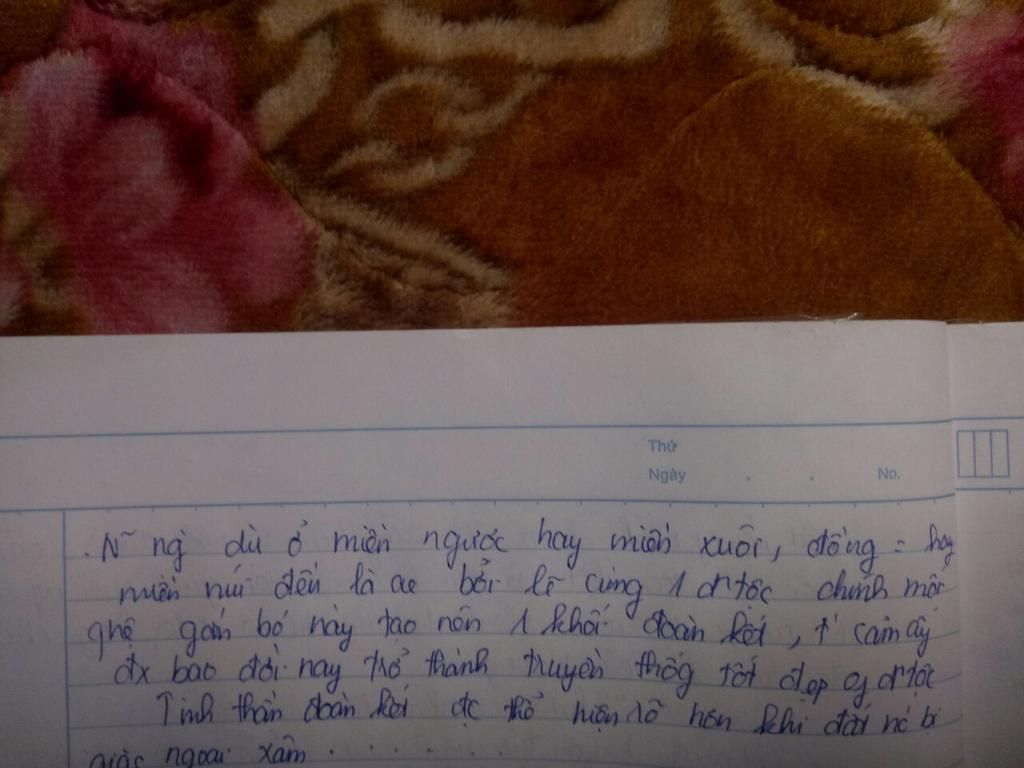 Thứ
Ngày . . No.
. N~ ng` dù ở miền ngược hay miền xuôi, đồng = hay
miền núi đều là ae bởi lẽ cùng 1 dtộc chính mối
qhệ gắn bó này tạo nên 1 khối đoàn kết, t' cảm ấy
đx bao đời nay trở thành truyền thốg tốt đẹp dtộc
Tinh thần đoàn kết đc thể hiện rõ hơn khi đất nc bị
giặc ngoại xâm . . . . . .